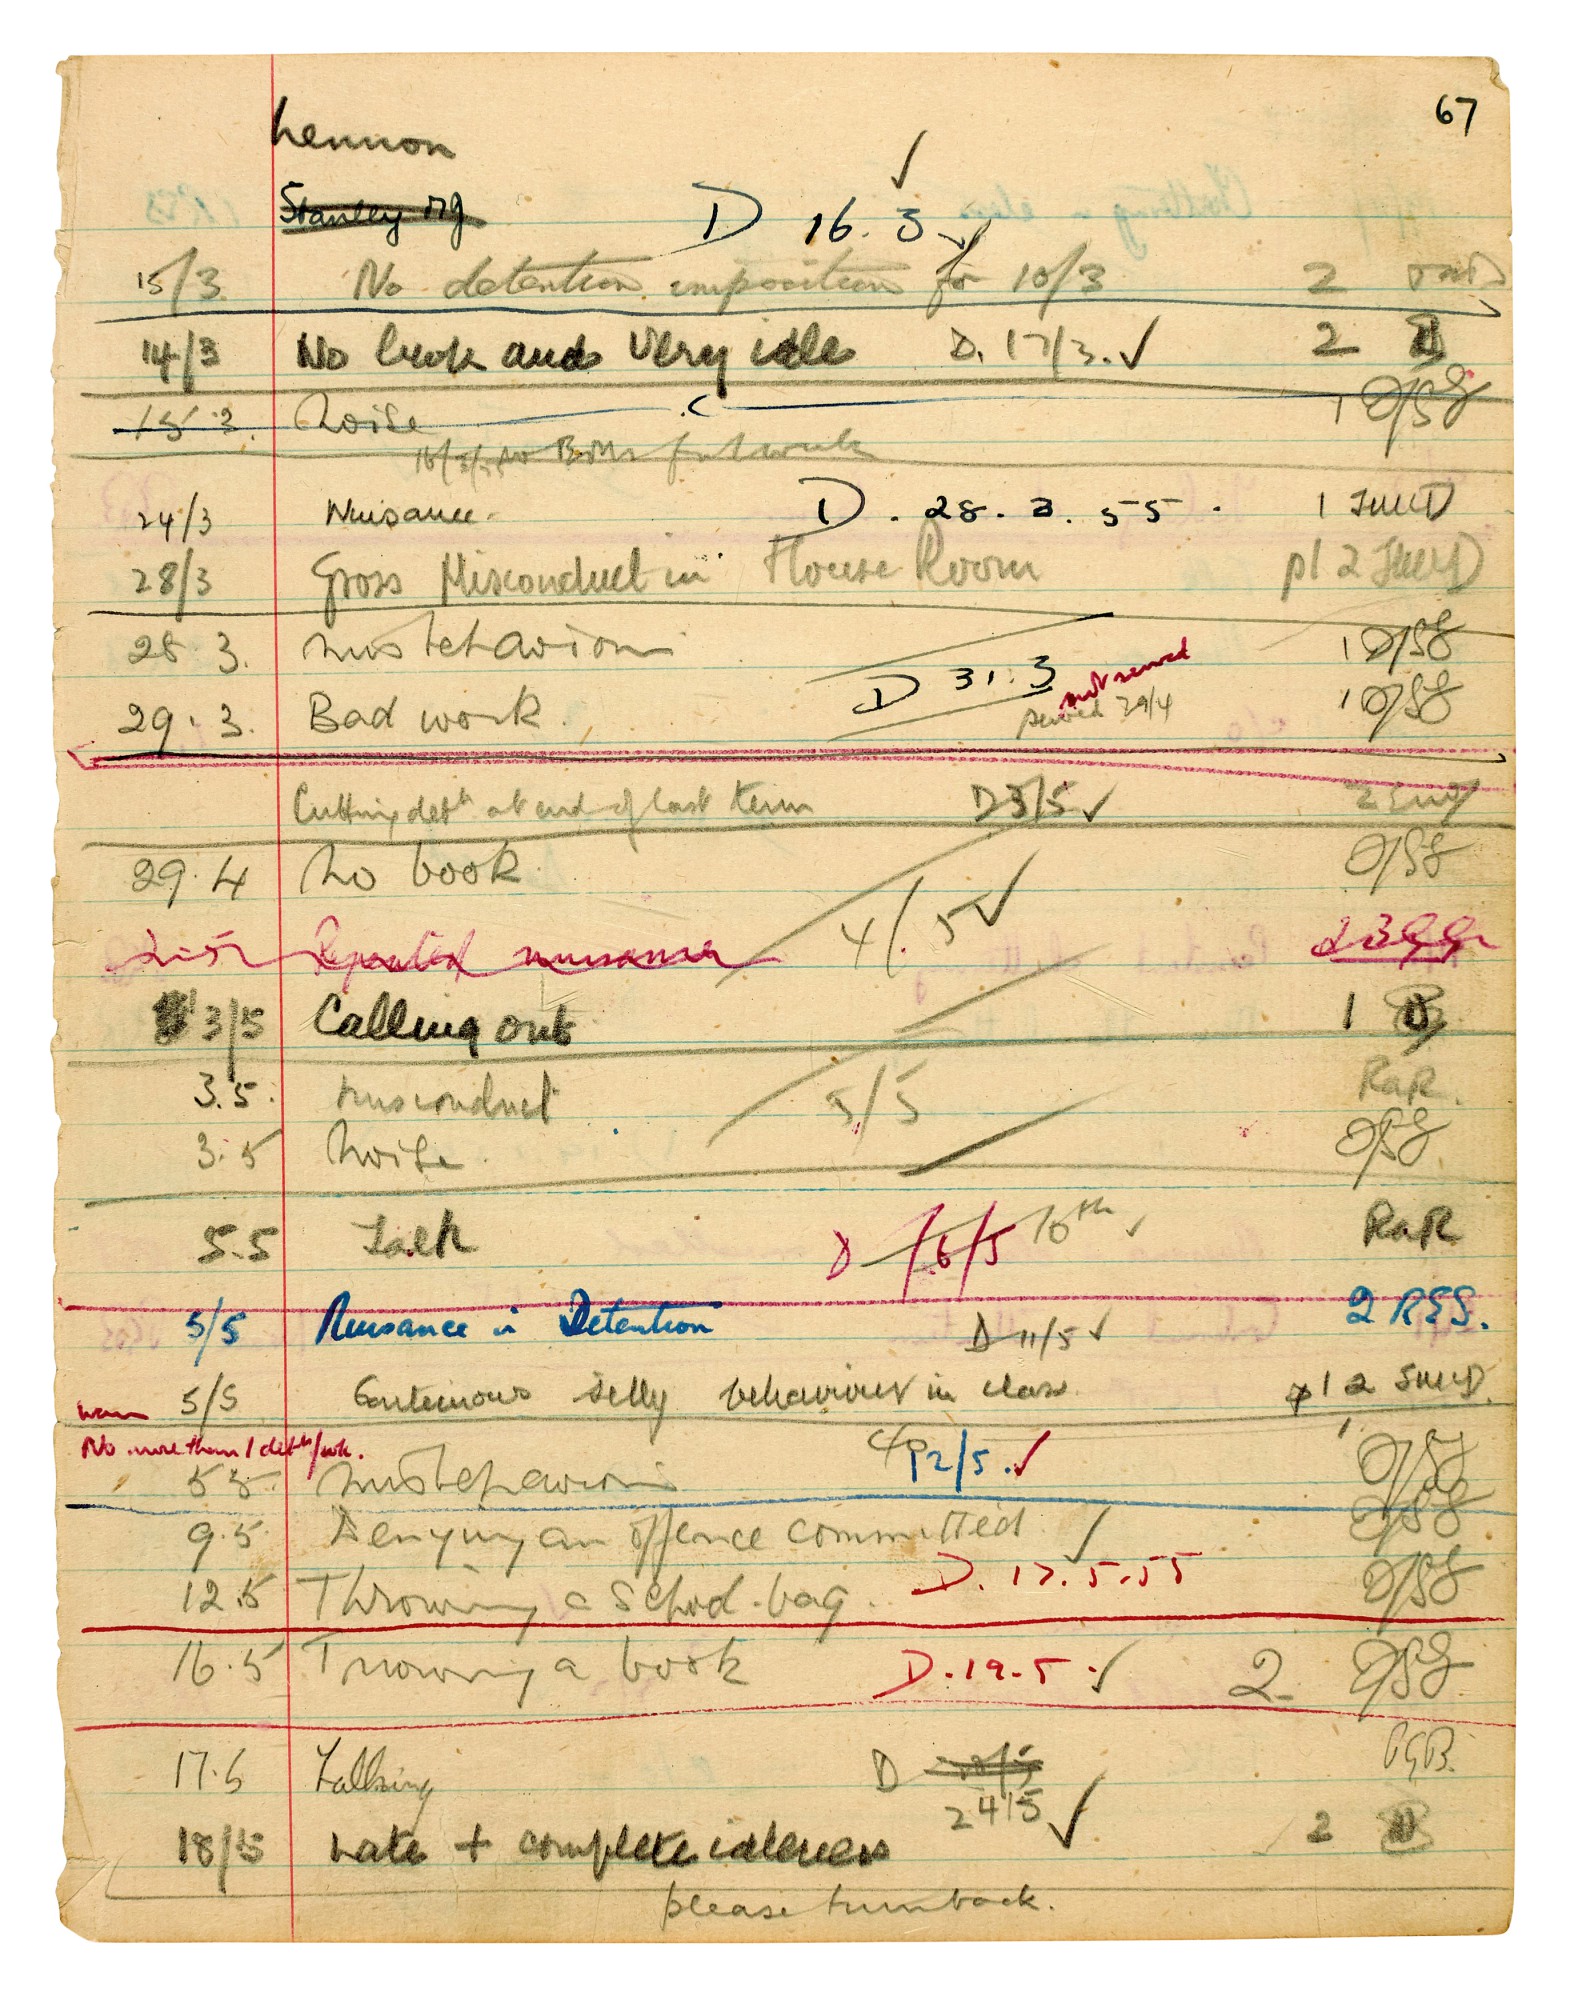 67
Lennon
Stanley Mg D 16.3
15/3 No detention imposition for 10/3 2
14/3 No book and very idle D. 17/3. 2
15.3. Noise 1
24/3 Nuisance. D. 28. 3. 55. 1
28/3 Gross Misconduct in House Room 2
28.3. misbehaviour 1
D 31.3 not served
29.3. Bad work. served 29/4 1
Cutting detn at end of last term D 3/5 2
29.4 No book.
4/5
2.5 Repeated nuisance 2
3/5 Calling out 1
3.5. misconduct 5/5 RaR.
3.5 Noise.
5.5 Talk D 6/5 10th RaR
5/5 Nuisance in Detention D 11/5 2 RES.
warn 5/5 Continuous silly behaviour in class 2
No more than 1 detn/wk.
5.5. misbehaviour 12/5.
9.5 Denying an offence committed
12.5 Throwing a school-bag. D. 17.5.55
16.5 Throwing a book D. 19.5. 2
17.5 Talking D 24/5 PGB.
18/5 Late + complete idleness 2
please turn back.